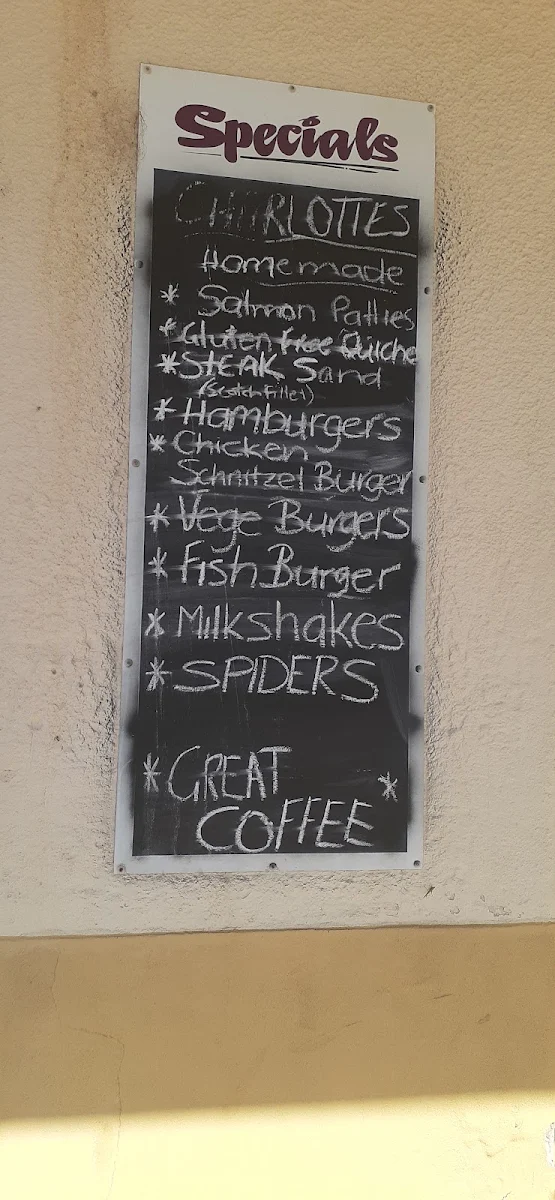 Specials
CHARLOTTES
Homemade
* Salmon Patties
* Gluten Free Quiche
* STEAK Sand
(Scotch Fillet)
* Hamburgers
* Chicken
Schnitzel Burger
* Vege Burgers
* Fish Burger
* Milkshakes
* SPIDERS
* GREAT *
COFFEE